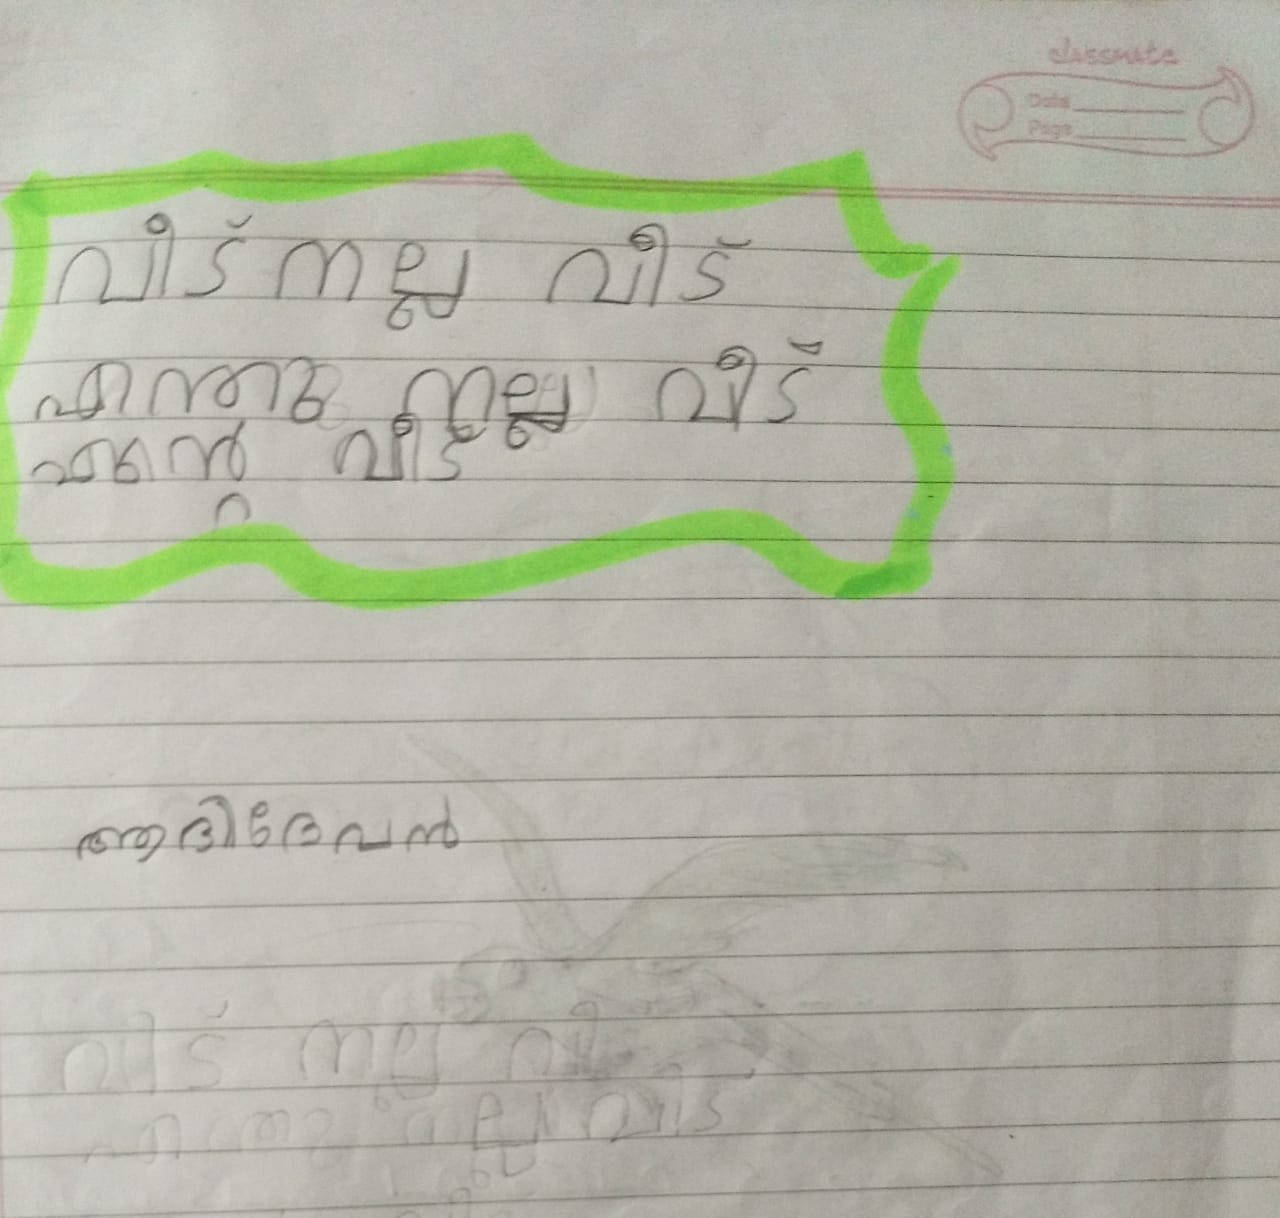 classmate
Date
Page
വീട് നല്ല വീട്
എന്തു നല്ല വീട്
എന്റെ വീട്
ആദിദേവൻ
വീട് നല്ല വീ
നല്ല വീട്